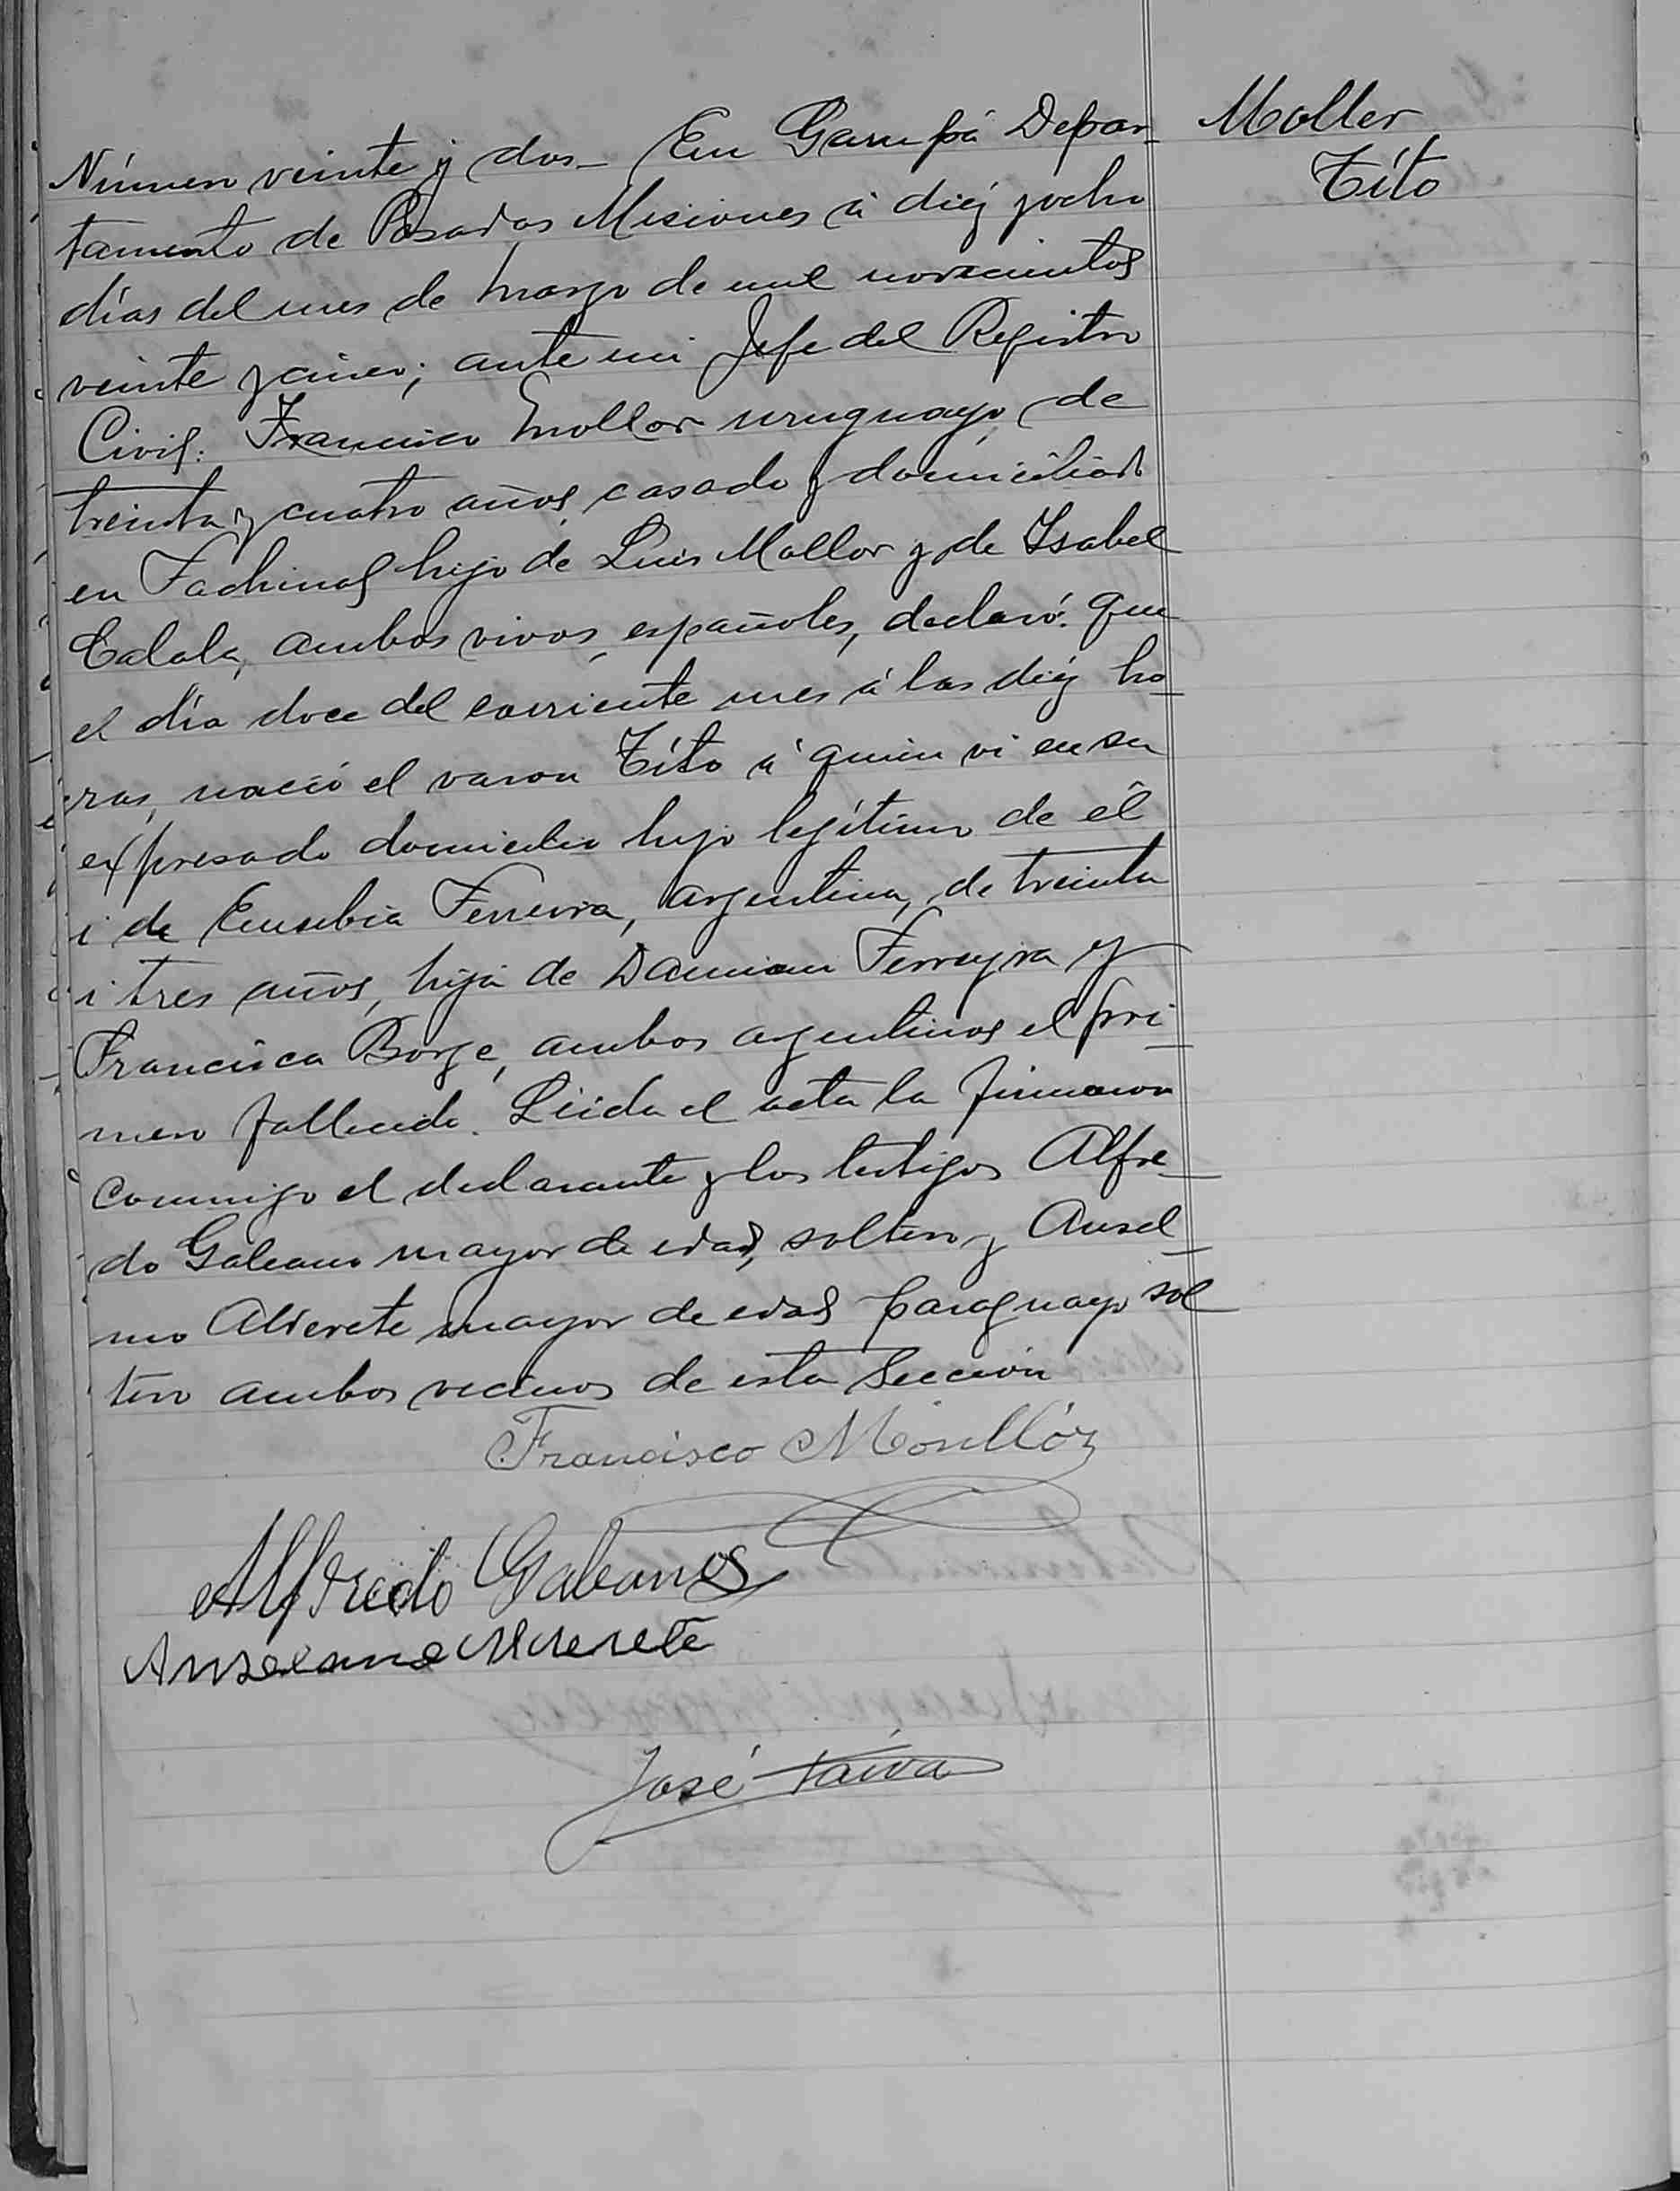 Moller
Títo
Número veinte y dos - En Garupá Depar-
tamento de Posadas Misiones á diéz y ocho
días del mes de Marzo de mil novecientos
veinte y cinco; ante mi Jefe del Registro
Civil: Francisco Mollor uruguayo, de
treinta y cuatro años, casado y domiciliado
en Fachinal hijo de Luis Mollor y de Isabel
Calala, ambos vivos, españoles, declaró: que
el día doce del corriente mes á las diéz ho-
ras, nació el varon Títo á quien vi en su
expresado domicilio hijo legítimo de él
i de Eusebia Ferreira, argentina, de treinta
i tres años, hija de Damian Ferreyra y
Francisca Borge, ambos argentinos el pri-
mero fallecido. Leida el acta la firmaron
conmigo el declarante y los testigos Alfre-
do Galeano mayor de edad, soltero y Ansel-
mo Alderete mayor de edad paraguayo sol
tero ambos vecinos de esta Sección
Francisco Monllór
Alfredo Galeano
Anselmo Alderete
José Paiva